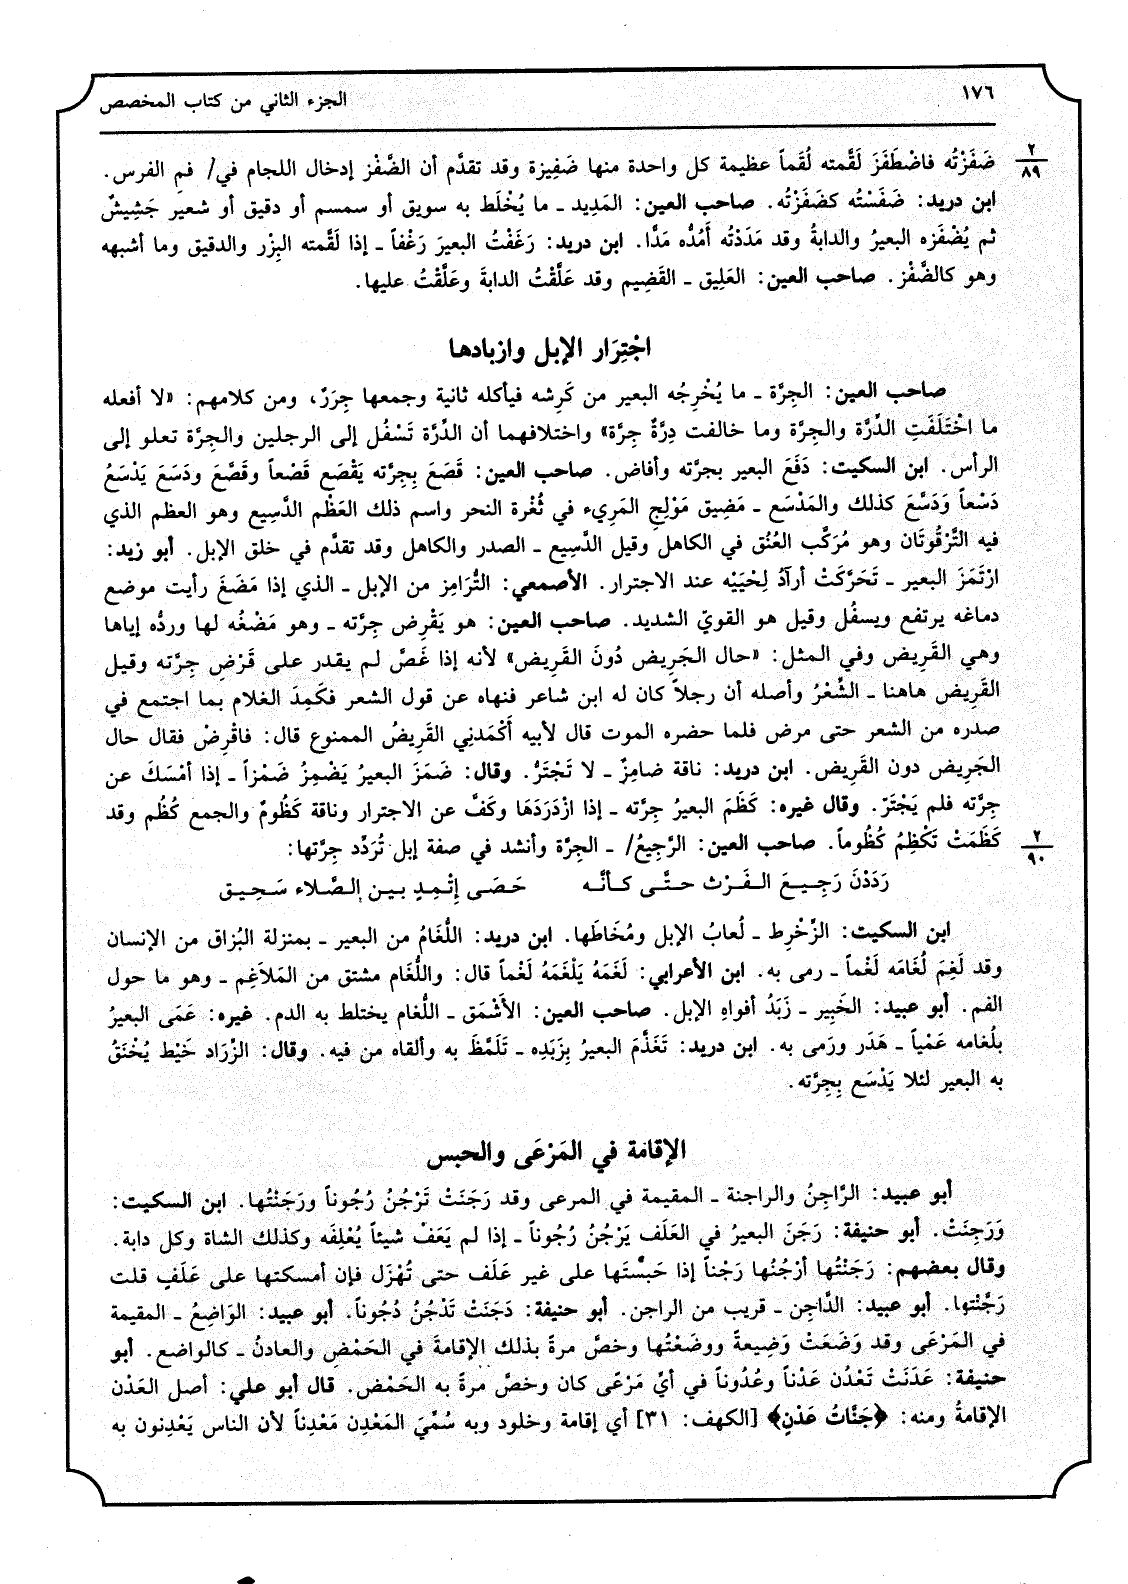 ١٧٦
الجزء الثاني من كتاب المخصص
ضَفَزْتُه فاضْطَفَزَ لَقَّمته لُقَماً عظيمة كل واحدة منها ضَفِيزة وقد تقدَّم أن الضَّفْز إدخال اللجام في/ فم الفرس.
٢
٨٩
ابن دريد: ضَفَسْتُه كضَفَزْتُه. صاحب العين: المَدِيد ـ ما يُخْلَط به سويق أو سمسم أو دقيق أو شعير جَشِيشٌ
ثم يُضْفَزه البعيرُ والدابةُ وقد مَدَدْتُه أَمُدُّه مَدًّا. ابن دريد: رَغَفْتُ البعيرَ رَغْفاً ـ إذا لَقَّمته البِزْر والدقيق وما أشبهه
وهو كالضَّفْز. صاحب العين: العَلِيق ـ القَضِيم وقد عَلَّقْتُ الدابةَ وعَلَّقْتُ عليها.
اجْتِرَار الإبل وازبادها
صاحب العين: الجِرَّة ـ ما يُخْرِجُه البعير من كَرِشه فيأكله ثانية وجمعها جِرَرٌ، ومن كلامهم: «لا أفعله
ما اخْتَلَفَتِ الدِّرَّة والجِرَّة وما خالفت دِرَّةٌ جِرَّة» واختلافهما أن الدِّرَّة تَسْفُل إلى الرجلين والجِرَّة تعلو إلى
الرأس. ابن السكيت: دَفَعَ البعير بجرَّته وأفاض. صاحب العين: قَصَعَ بِجِرَّته يَقْصَع قَصْعاً وقَصَّعَ ودَسَعَ يَدْسَعُ
دَسْعاً وَدَسَّعَ كذلك والمَدْسَع ـ مَضِيق مَوْلِجِ المَرِيء في ثُغْرة النحر واسم ذلك العَظْم الدَّسِيع وهو العظم الذي
فيه التَّرْقُوَتَان وهو مُرَكَّب العُنُق في الكاهل وقيل الدَّسِيع ـ الصدر والكاهل وقد تقدَّم في خلق الإبل. أبو زيد:
ارْتَمَزَ البعير ـ تَحَرَّكَتْ أرآدُ لِحْيَيْه عند الاجترار. الأصمعي: التُّرَامِز من الإبل ـ الذي إذا مَضَغَ رأيت موضع
دماغه يرتفع ويسفُل وقيل هو القويّ الشديد. صاحب العين: هو يَقْرِض جِرَّته ـ وهو مَضْغُه لها وردُّه إياها
وهي القَرِيض وفي المثل: «حال الجَرِيض دُونَ القَرِيض» لأنه إذا غَصَّ لم يقدر على قَرْض جِرَّته وقيل
القَرِيض هاهنا ـ الشِّعْرُ وأصله أن رجلاً كان له ابن شاعر فنهاه عن قول الشعر فكَمِدَ الغلام بما اجتمع في
صدره من الشعر حتى مرض فلما حضره الموت قال لأبيه أَكْمَدنِي القَرِيضُ الممنوع قال: فاقْرِضْ فقال حال
الجَرِيض دون القَرِيض. ابن دريد: ناقة ضامِزٌ ـ لا تَجْتَرُّ. وقال: ضَمَزَ البعيرُ يَضْمِزُ ضَمْزاً ـ إذا أمْسَكَ عن
جِرَّته فلم يَجْتَرّ. وقال غيره: كَظَمَ البعيرُ جِرَّته ـ إذا ازْدَرَدَهَا وكَفَّ عن الاجترار وناقة كَظُومٌ والجمع كُظُم وقد
كَظَمَتْ تَكْظِمُ كُظُوماً. صاحب العين: الرَّجِيعُ/ ـ الجِرَّة وأنشد في صفة إبل تُرَدِّد جِرَّتها:
٢
٩٠
رَدَدْنَ رَجِيـعَ الـفَـرْث حـتَّـى كـأنَّـه    حَـصَـى إثْـمِـدٍ بـيـن الـصَّـلاء سَـحِـيـق
ابن السكيت: الزِّخْرِط ـ لُعابُ الإبل ومُخَاطَها. ابن دريد: اللُّغَامُ من البعير ـ بمنزلة البُزاق من الإنسان
وقد لَغِمَ لُغَامَه لَغْماً ـ رمى به. ابن الأعرابي: لَغَمَهُ يَلْغَمَهُ لَغْماً قال: واللُّغَام مشتق من المَلاَغِم ـ وهو ما حول
الفم. أبو عبيد: الخَبِير ـ زَبَدُ أفواهِ الإبل. صاحب العين: الأَشْمَق ـ اللُّغام يختلط به الدم. غيره: عَمَى البعيرُ
بلُغامه عَمْياً ـ هَدَر ورَمى به. ابن دريد: تَغَذَّمَ البعيرُ بِزَبَدِه ـ تَلَمَّظَ به وألقاه من فيه. وقال: الزِّرَاد خَيْط يُخْنَقُ
به البعير لئلا يَدْسَع بِجِرَّته.
الإقامة في المَرْعَى والحبس
أبو عبيد: الرَّاجِنُ والراجنة ـ المقيمة في المرعى وقد رَجَنَتْ تَرْجُنُ رُجُوناً ورَجَنْتُها. ابن السكيت:
وَرَجِنَتْ. أبو حنيفة: رَجَنَ البعيرُ في العَلَف يَرْجُنُ رُجُوناً ـ إذا لم يَعَفْ شيئاً يُعْلِفَه وكذلك الشاة وكل دابة.
وقال بعضهم: رَجَنْتُها أرْجُنُها رَجْناً إذا حَبسْتَها على غير عَلَف حتى تُهْزَل فإن أمسكتها على عَلَفٍ قلت
رَجَّنْتها. أبو عبيد: الدَّاجِن ـ قريب من الراجن. أبو حنيفة: دَجَنَتْ تَدْجُنُ دُجُوناً. أبو عبيد: الوَاضِعُ ـ المقيمة
في المَرْعَى وقد وَضَعَتْ وَضِيعةً ووضَعْتُها وخصَّ مرةً بذلك الإقامةَ في الحَمْضِ والعادنُ ـ كالواضع. أبو
حنيفة: عَدَنَتْ تَعْدُن عَدْناً وعُدُوناً في أيِّ مَرْعًى كان وخصَّ مرةً به الحَمْض. قال أبو علي: أصل العَدْن
الإقامةُ ومنه: ﴿جَنَّاتُ عَدْنٍ﴾ [الكهف: ٣١] أي إقامة وخلود وبه سُمِّيَ المَعْدِن مَعْدِناً لأن الناس يَعْدِنون به